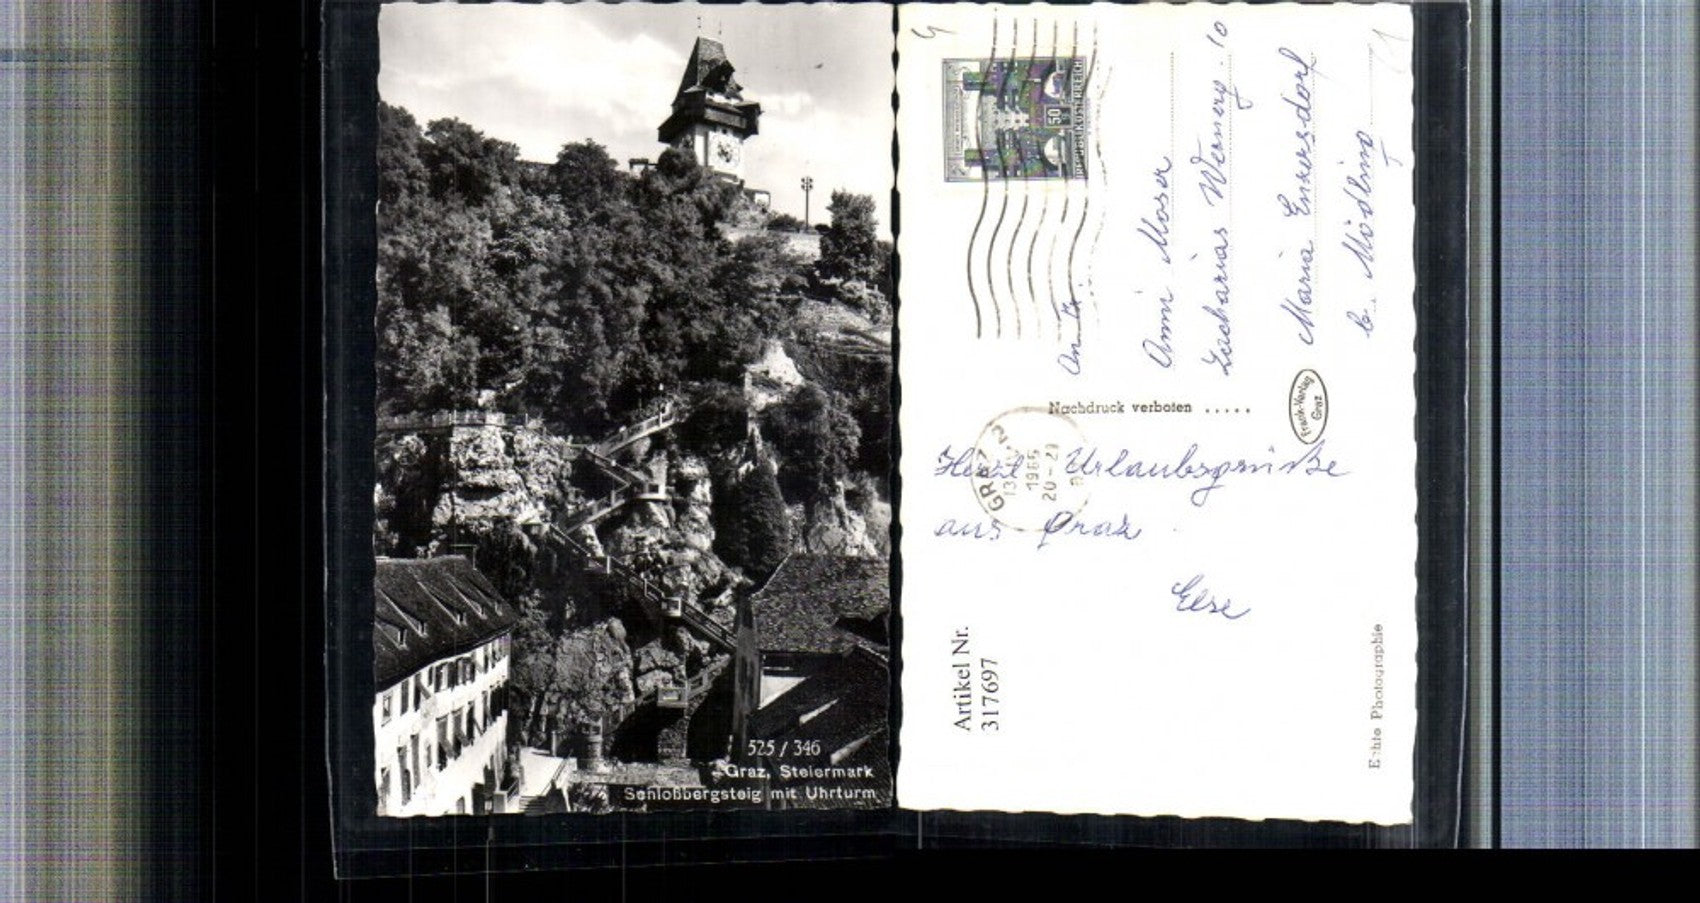 525 / 346
Graz, Steiermark
Schloßbergsteig mit Uhrturm
50
REPUBLIK ÖSTERREICH
An Fr.
Anni Moser
Zacharias Wernerg. 10
Maria Enzersdorf
b. Mödling
Nachdruck verboten .....
Frank-Verlag
Graz
GRAZ
1966
20-21
Herzl. Urlaubsgrüße
aus Graz
Else
Artikel Nr.
317697
Echte Photographie